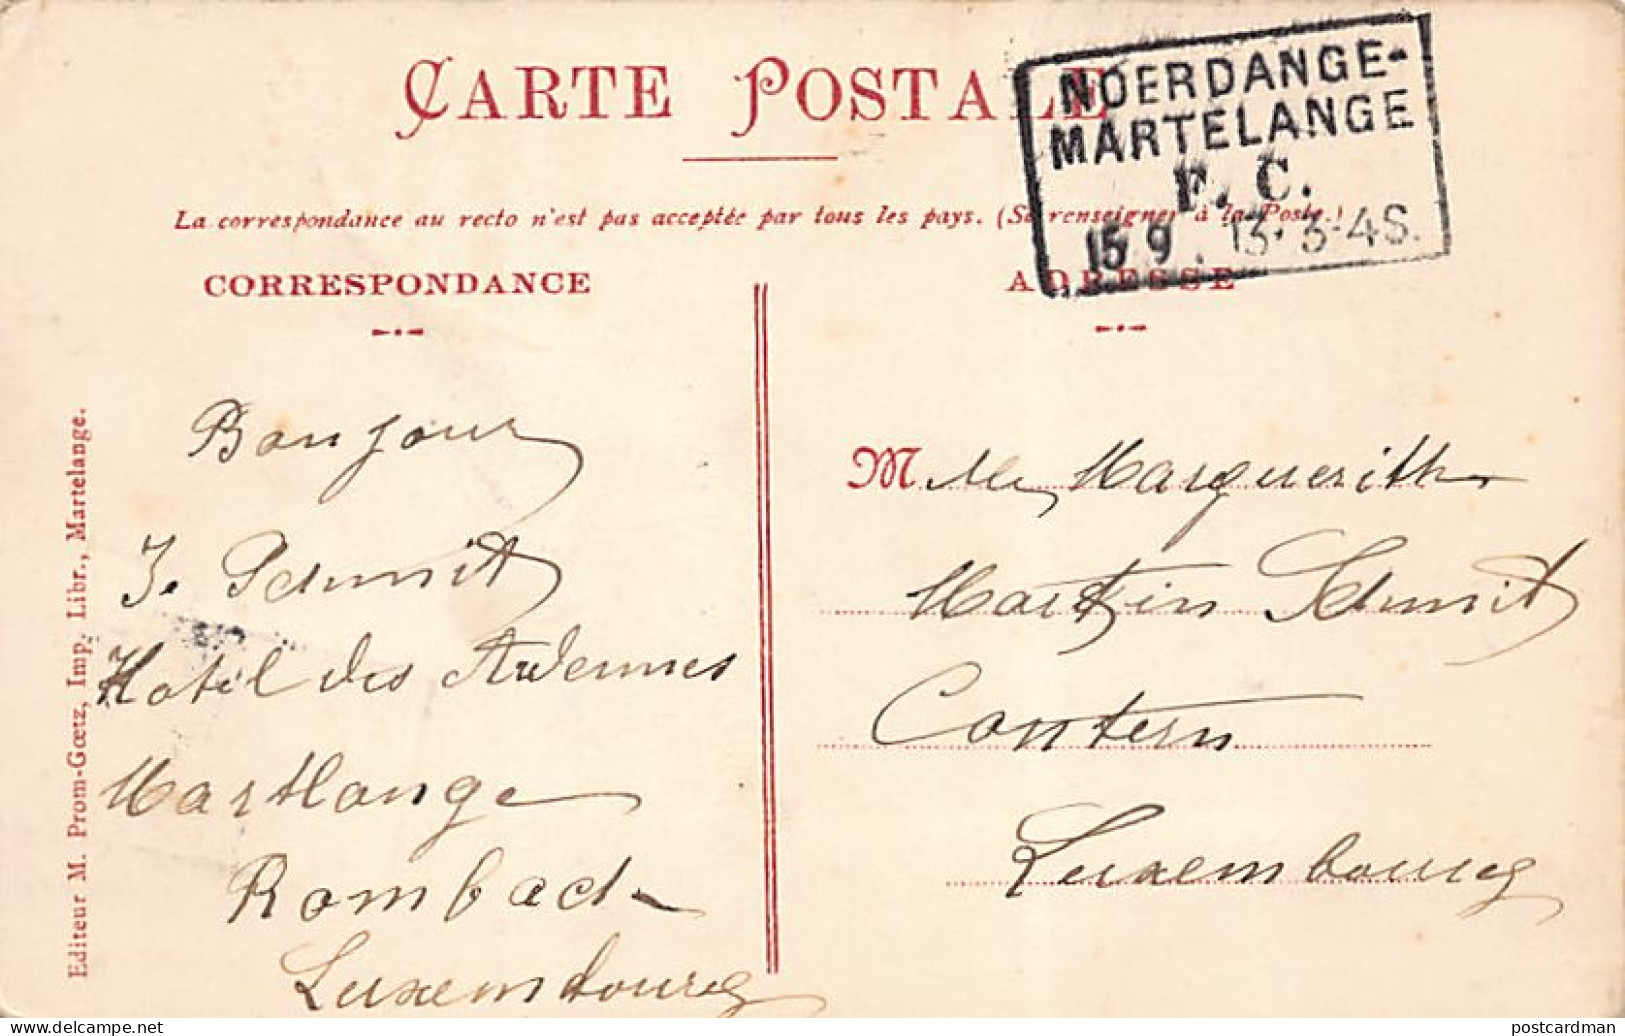 CARTE POSTALE
NOERDANGE-
MARTELANGE
F. C.
15 9 . 13-3-4S.
La correspondance au recto n'est pas acceptée par tous les pays. (Se renseigner à la Poste.)
CORRESPONDANCE
Bonjour
J. Schmit
Hotel des Ardennes
Martlange
Rombach
Luxembourg
ADRESSE
M Mlle Marguerithe
Martin Schmit
Contern
Luxembourg
Editeur M. Prom-Gœtz, Imp. Libr., Martelange.
delcampe.net
postcardman